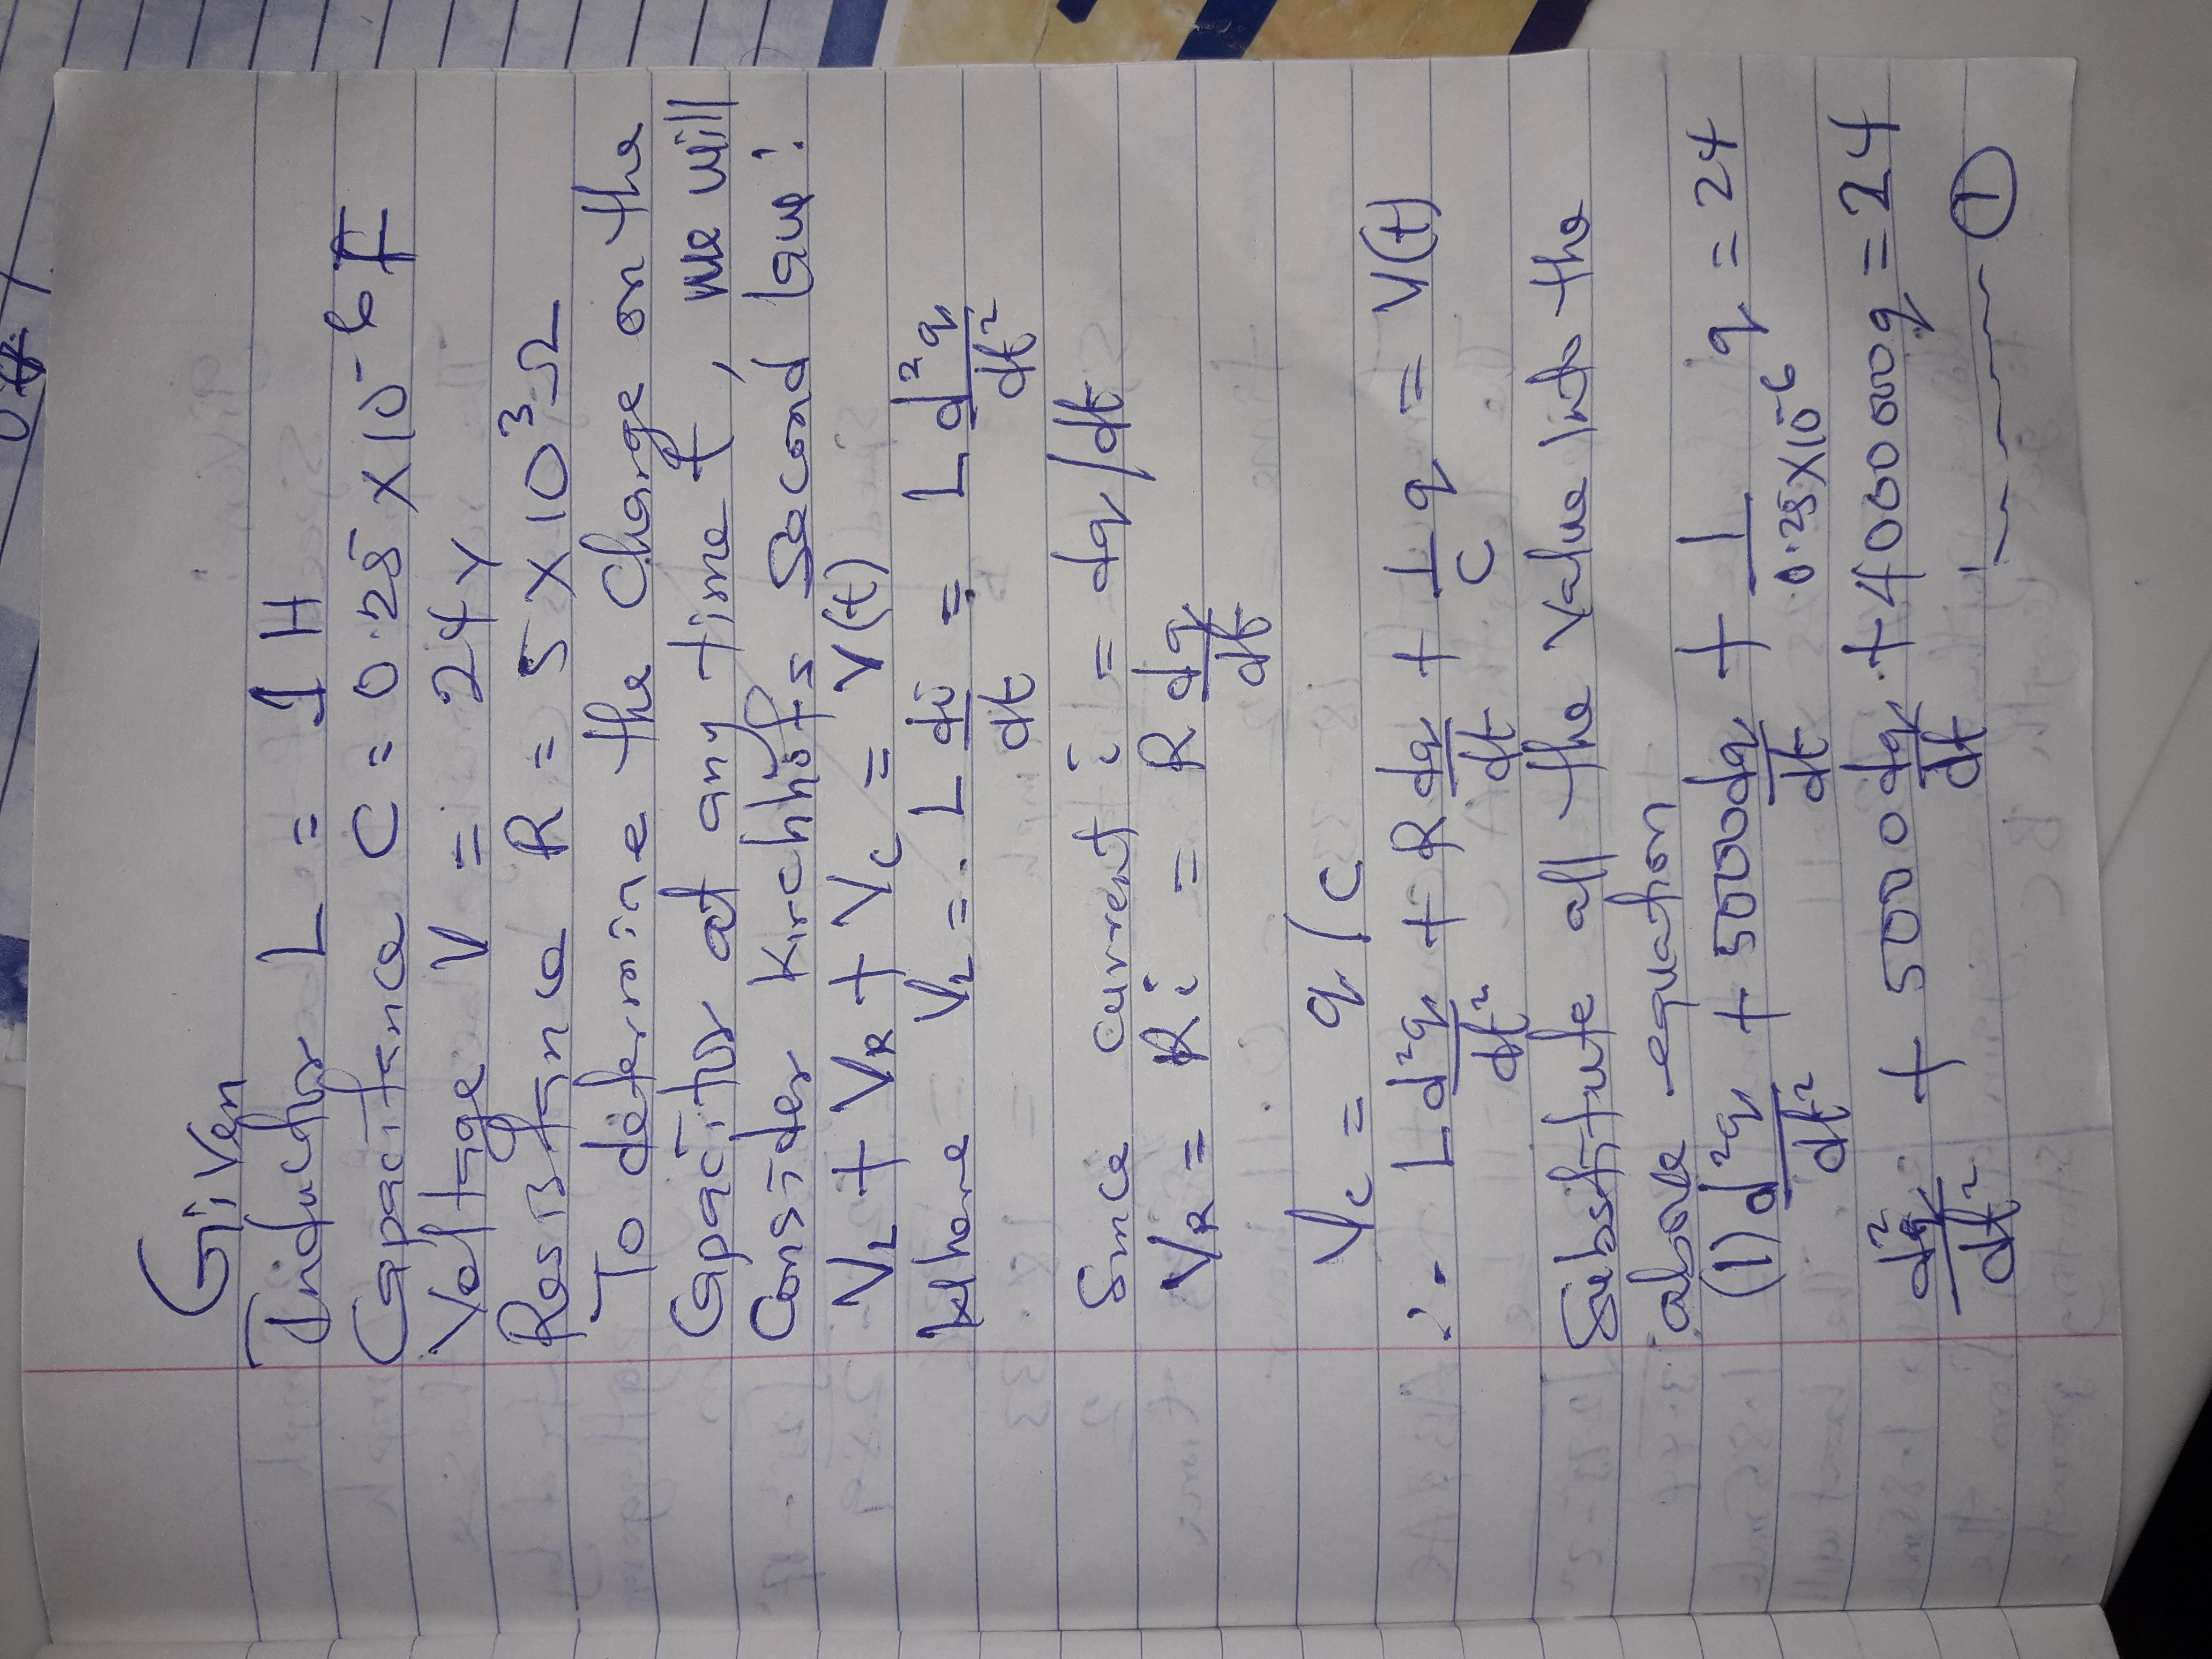 Given
Inductor L = 1 H
Capacitance C = 0.25 × 10⁻⁶ F
Voltage V = 24 V
Resistance R = 5 × 10³ Ω
To determine the charge on the
Capacitor at any time t, we will
Consider Kirchhoff's Second law!
V_L + V_R + V_C = V(t)
Where V_L = L di/dt = L d²q/dt²
Since current i = dq/dt
V_R = Ri = R dq/dt
V_C = q/C
∴ L d²q/dt² + R dq/dt + 1/C q = V(t)
Substitute all the value into the
above equation
(1) d²q/dt² + 5000 dq/dt + 1/0.25×10⁻⁶ q = 24
d²q/dt² + 5000 dq/dt + 4000000q = 24
①